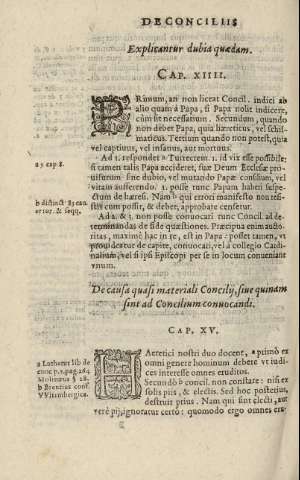 DE CONCILIIS
Explicantur dubia quædam.
CAP. XIIII.
PRimum, an non liceat Concil. indici ab
alio quam à Papa, si Papa nolit indicere,
cùm sit necessarium. Secundum, quando
non debet Papa, quia hæreticus, vel schis-
maticus. Tertium quando non potest, quia
vel captiuus, vel insanus, aut mortuus.
Ad 1. respondet a Turrecrem. 1. id vix esse possibile:
si tamen talis Papa accideret, fuæ Deum Ecclesiæ pro-
uisurum sine dubio, vel mutando Papæ consilium, vel
vitam auferendo. 1. posse tunc Papam haberi suspe-
ctum de hæresi. Nam b qui errori manifesto non resi-
stit cum possit, & debet, approbare censetur.
Ad 2. & 3. non posse conuocari tunc Concil. ad de-
terminandas de fide quæstiones. Præcipua enim aucto-
ritas, maximè hac in re, est in Papa: posse tamen, vt
prouideatur de capite, conuocari, vel à collegio Cardi-
nalium, vel si ipsi Episcopi per se in locum conueniant
vnum.
a 3 cap 8.
b distinct. 83 can
error. & seqq.
De causa quasi materiali Concilij, siue quinam
sint ad Concilium conuocandi.
CAP. XV.
HAeretici nostri duo docent, a primò ex
omni genere hominum debere vt iudi-
ces interesse omnes eruditos.
Secundò b concil. non constare nisi ex
solis piis, & electis. Sed hoc posterius,
destruit prius. Nam qui sint electi, aut
verè pij, ignoratur certò: quomodo ergo omnes eru-
a Lutherus lib de
conc p.2.pag.264
Molinæus § 28.
b Brentius conf.
VVirtembergica.